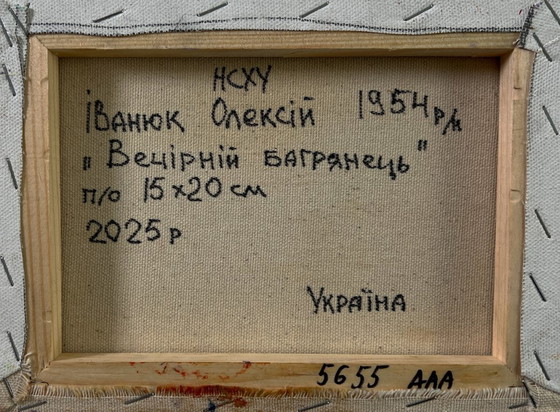 НСХУ
Іванюк Олексій 1954 р/н
„Вечірній багрянець"
п/о 15х20 см
2025 р
Україна
5655 АЛА